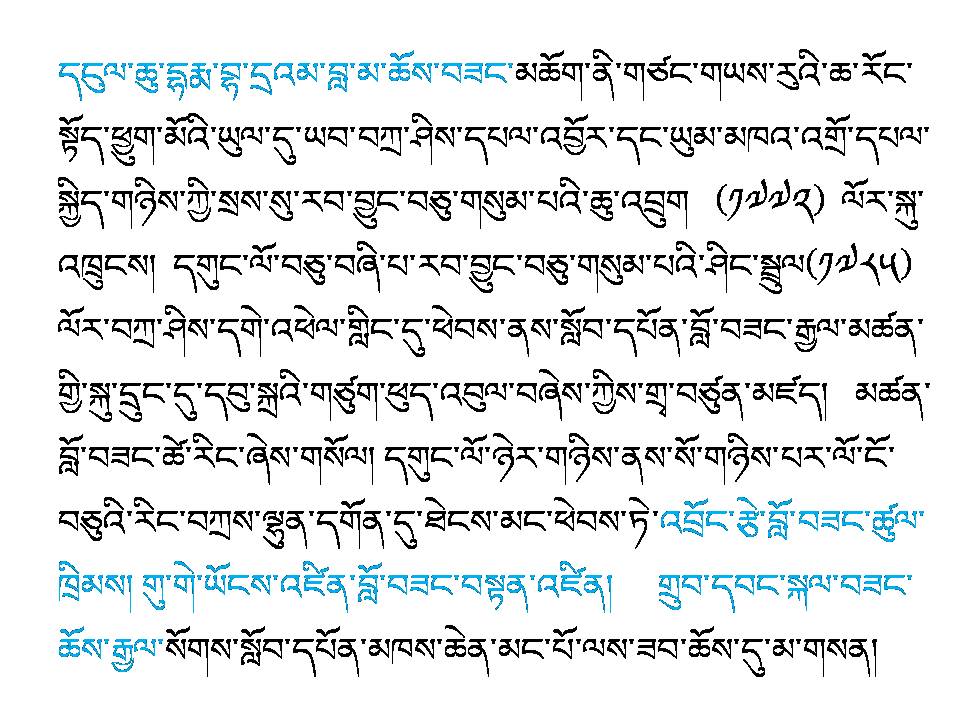 དངུལ་ཆུ་དྷརྨ་བྷ་དྲའམ་བླ་མ་ཆོས་བཟང་མཆོག་ནི་གཙང་གཡས་རུའི་ཆ་རོང་
སྟོད་ཕྱུག་མོའི་ཡུལ་དུ་ཡབ་བཀྲ་ཤིས་དཔལ་འབྱོར་དང་ཡུམ་མཁའ་འགྲོ་དཔལ་
སྐྱིད་གཉིས་ཀྱི་སྲས་སུ་རབ་བྱུང་བཅུ་གསུམ་པའི་ཆུ་འབྲུག (༡༧༧༢) ལོར་སྐུ་
འཁྲུངས། དགུང་ལོ་བཅུ་བཞི་པ་རབ་བྱུང་བཅུ་གསུམ་པའི་ཤིང་སྦྲུལ(༡༧༨༥)
ལོར་བཀྲ་ཤིས་དགེ་འཕེལ་གླིང་དུ་ཕེབས་ནས་སློབ་དཔོན་བློ་བཟང་རྒྱལ་མཚན་
གྱི་སྐུ་དྲུང་དུ་དབུ་སྐྲའི་གཙུག་ཕུད་འབུལ་བཞེས་ཀྱིས་གྲྭ་བཙུན་མཛད། མཚན་
བློ་བཟང་ཚེ་རིང་ཞེས་གསོལ། དགུང་ལོ་ཉེར་གཉིས་ནས་སོ་གཉིས་པར་ལོ་ངོ་
བཅུའི་རིང་བཀྲས་ལྷུན་དགོན་དུ་ཐེངས་མང་ཕེབས་ཏེ་འབྲོང་རྩེ་བློ་བཟང་ཚུལ་
ཁྲིམས། གུ་གེ་ཡོངས་འཛིན་བློ་བཟང་བསྟན་འཛིན། གྲུབ་དབང་སྐལ་བཟང་
ཆོས་རྒྱལ་སོགས་སློབ་དཔོན་མཁས་ཆེན་མང་པོ་ལས་ཟབ་ཆོས་དུ་མ་གསན།